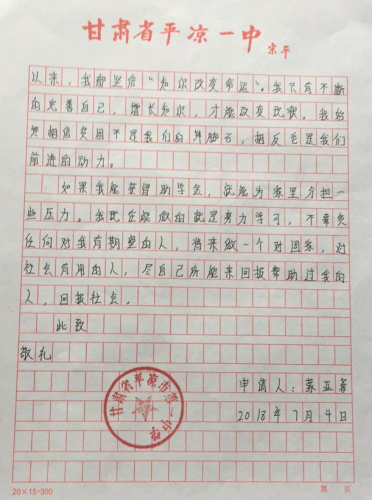 甘肃省平凉一中
宗平
以来，我都坚信“知识改变命运”。我只有不断
的完善自己，增长知识，才能改变现状。我始
终相信贫困不是我们的绊脚石，相反它是我们
前进的动力。
如果我能获得助学金，就能为家里分担一
些压力。我现在能做的就是努力学习，不辜负
任何对我有期望的人，将来做一个对国家，对
社会有用的人，尽自己所能来回报帮助过我的
人，回报社会。
此致
敬礼
甘肃省平凉市第一中学
申请人：蒙亚
2018年7月4日
20×15=300
第 页